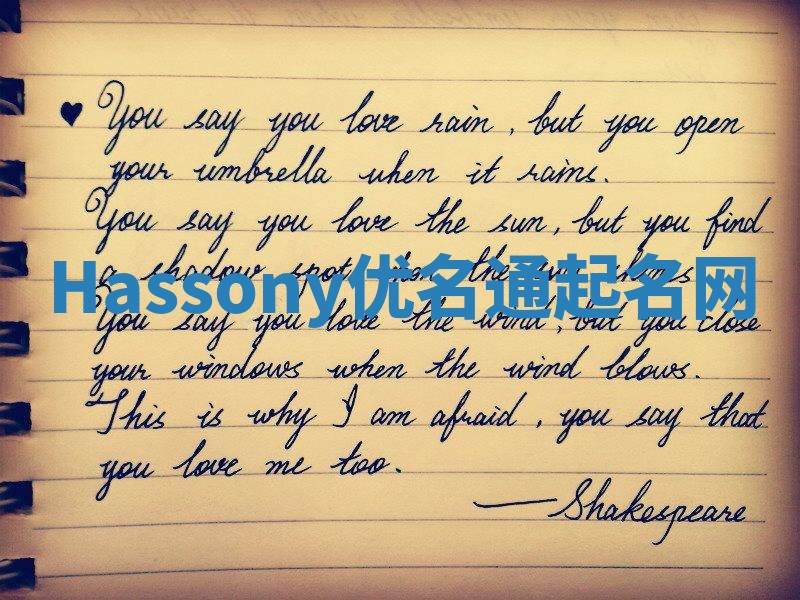 ♥ You say you love rain, but you open
your umbrella when it rains.
You say you love the sun, but you find
a shadow spot when the sun shines
Hassony优名通起名网
You say you love the wind, but you close
your windows when the wind blows.
This is why I am afraid, you say that
you love me too.
—Shakespeare